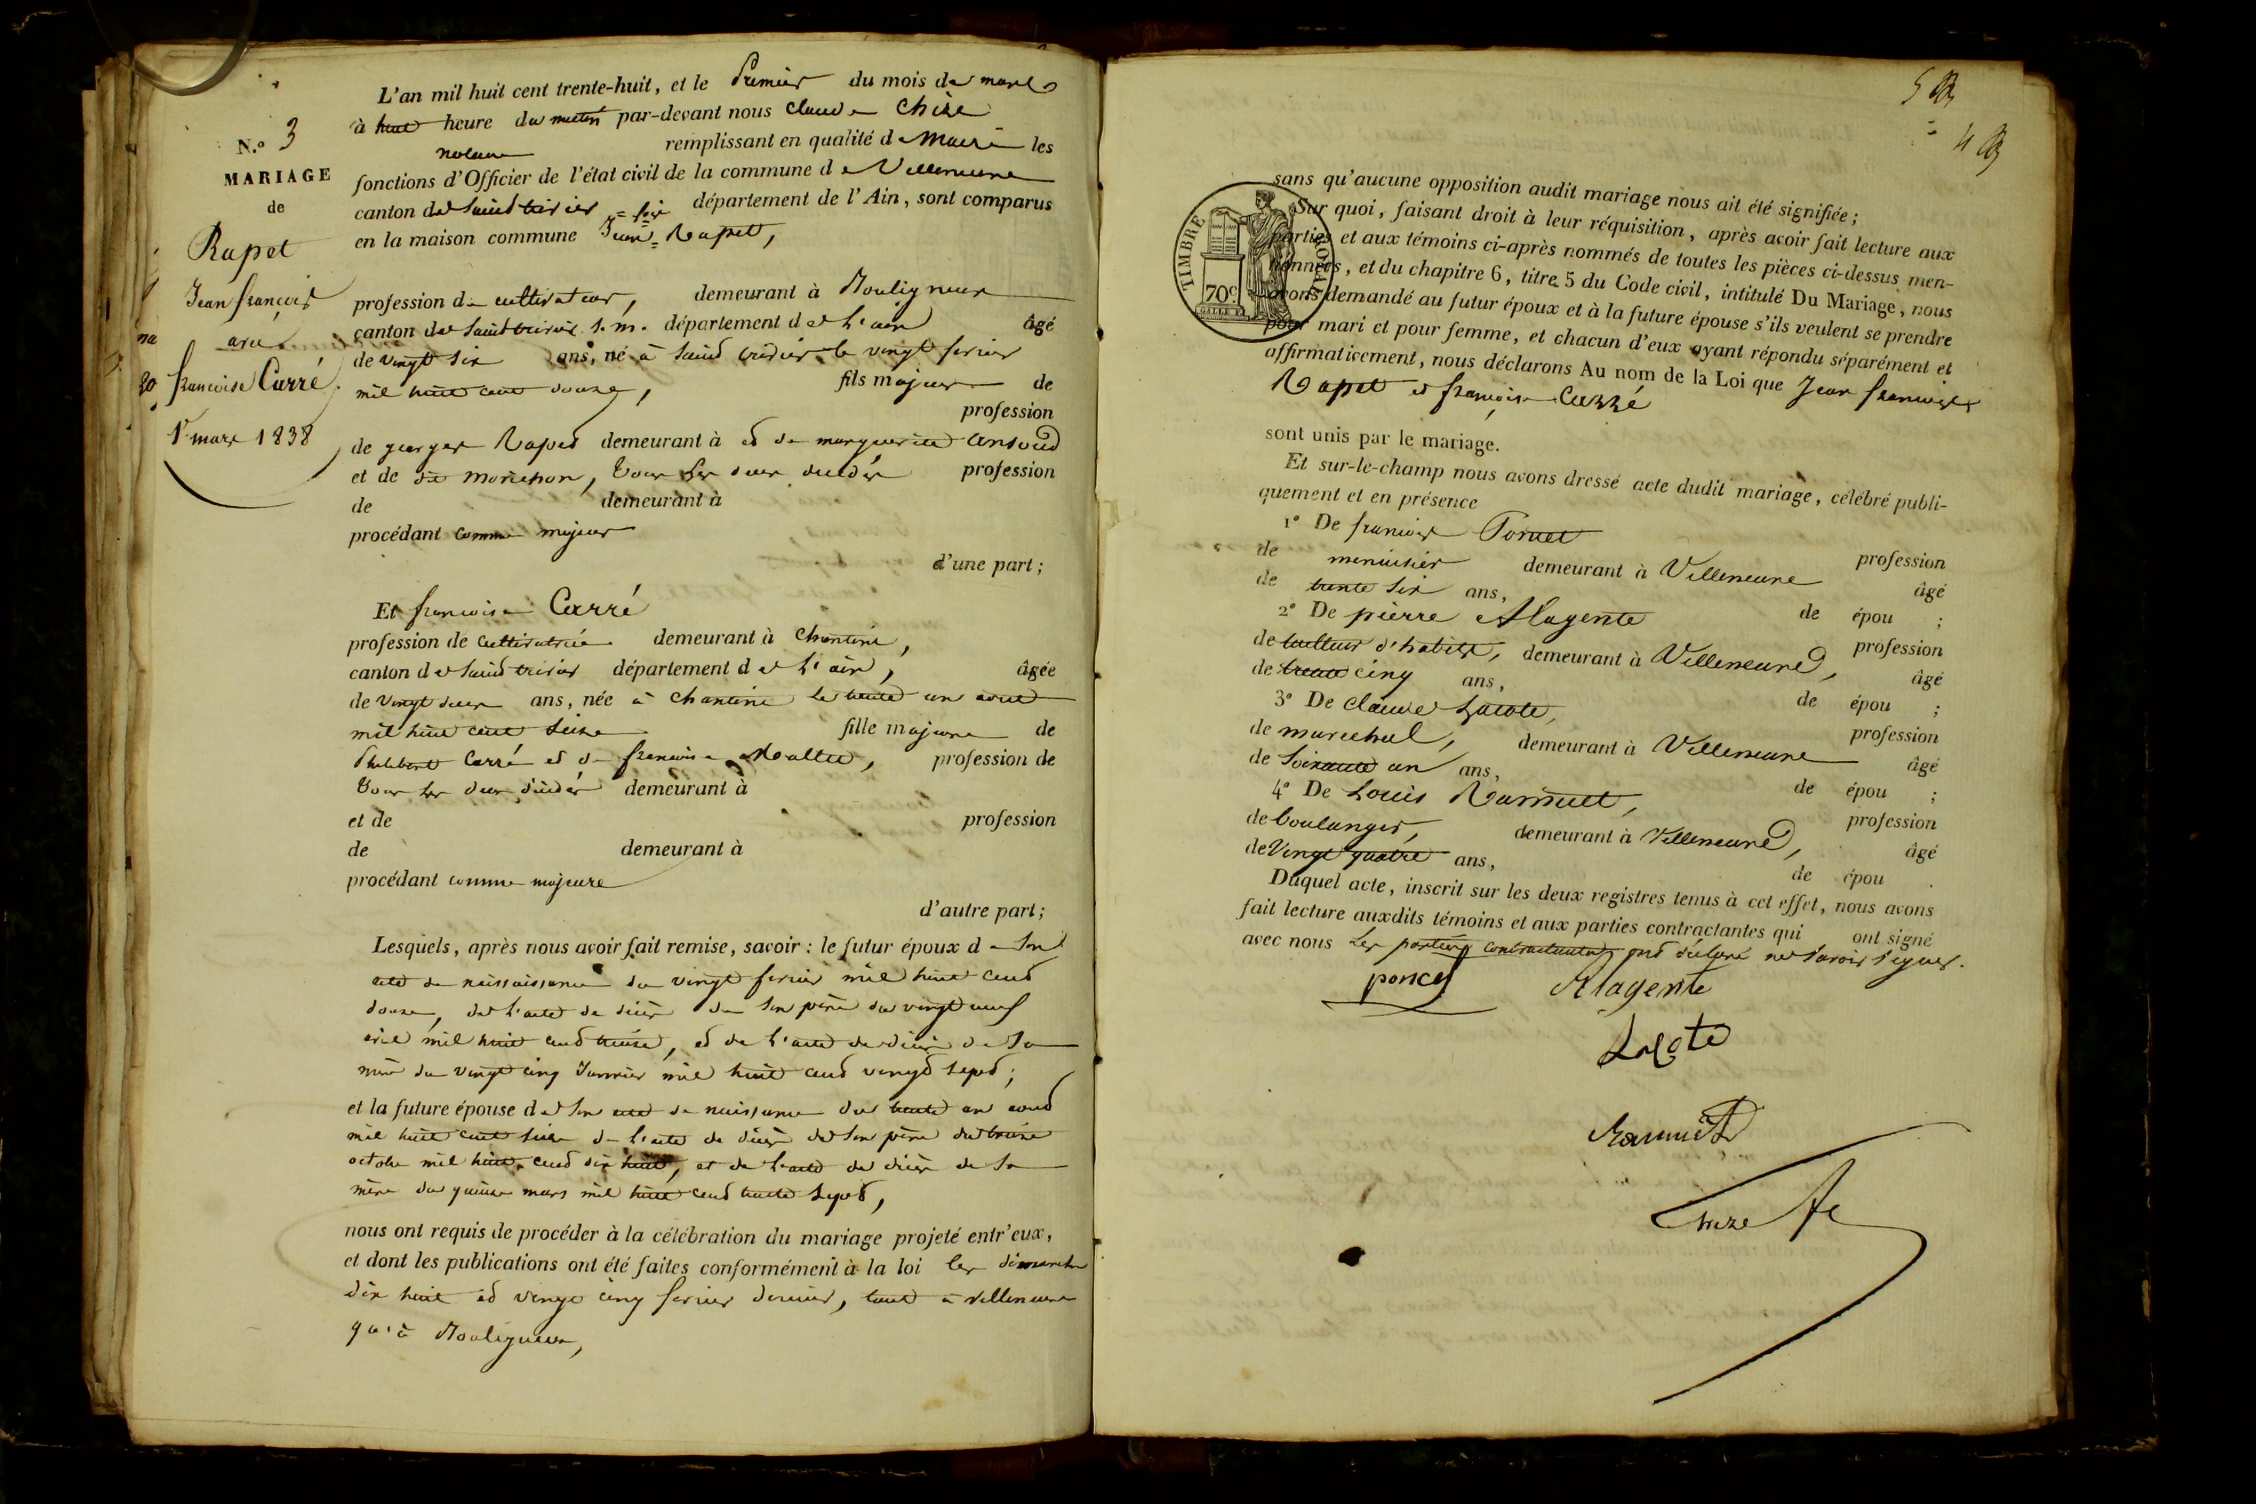 N.º 3
MARIAGE
de
Rapet
Jean françois
avec
françoise Carré
1er mars 1838
L'an mil huit cent trente-huit, et le Premier du mois de mars
à huit heure du matin par-devant nous Claude Chize
notaire remplissant en qualité de Maire les
fonctions d'Officier de l'état civil de la commune de Villeneuve
canton de Saint trivier département de l'Ain, sont comparus
en la maison commune Jean = fçois = Rapet,
profession de cultivateur, demeurant à Mouligneux
canton de Saint trivier s. m. département de l'ain âgé
de vingt six ans, né à Saint tridier le vingt fevrier
mil huit cent douze, fils majeur de
profession
de georges Rapet demeurant à et de marguerite ansoud
et de dit morichon, tous les deux décédés profession
de demeurant à
procédant comme majeur
d'une part;
Et francoise Carré
profession de cultivatrice demeurant à Chanteins,
canton de Saint trivier département de l'ain, âgée
de vingt deux ans, née à chanteins le trente un aout
mil huit cent seize fille majeure de
Philibert Carré et de francoise Maltie, profession de
tous les deux décédés demeurant à
et de profession
de demeurant à
procédant comme majeure
d'autre part;
Lesquels, après nous avoir fait remise, savoir : le futur époux de son
acte de naissaissance du vingt fevrier mil huit cent
douze, de l'acte de décès de son père du vingt neuf
avril mil huit cent treize, et de l'acte de décès de sa
mère du vingt cinq Janvier mil huit cent vingt sept;
et la future épouse de son acte de naissance du trente un aout
mil huit cent seize de l'acte de décès de son père du treize
octobre mil huit cent dix huit, et de l'acte de décès de sa
mère du quinze mars mil huit cent trente sept,
nous ont requis de procéder à la célébration du mariage projeté entr'eux,
et dont les publications ont été faites conformément à la loi les dimanche
dix huit et vingt cinq fevrier dernier, tant à villeneuve
qu'à Mouligneux,
5
4
TIMBRE ROYAL
70c
sans qu'aucune opposition audit mariage nous ait été signifiée;
Sur quoi, faisant droit à leur réquisition, après avoir fait lecture aux
parties et aux témoins ci-après nommés de toutes les pièces ci-dessus men-
tionnées, et du chapitre 6, titre 5 du Code civil, intitulé Du Mariage, nous
avons demandé au futur époux et à la future épouse s'ils veulent se prendre
pour mari et pour femme, et chacun d'eux ayant répondu séparément et
affirmativement, nous déclarons Au nom de la Loi que Jean francois
Rapet et françoise Carré
sont unis par le mariage.
Et sur-le-champ nous avons dressé acte dudit mariage, célébré publi-
quement et en présence
1º De francois Poncet
de menuisier demeurant à Villeneuve profession
de trente six ans, âgé
2º De pierre Alagente de épou ;
de tailleur d'habits, demeurant à Villeneuve, profession
de trente cinq ans, âgé
3º De claude Lacote, de épou ;
de marechal, demeurant à Villeneuve profession
de Soixante un ans, âgé
4º De Louis Ramuet, de épou ;
de boulanger, demeurant à Villeneuve, profession
de Vingt quatre ans, âgé
de épou .
Duquel acte, inscrit sur les deux registres tenus à cet effet, nous avons
fait lecture auxdits témoins et aux parties contractantes qui ont signé
avec nous Les parties contractantes ont déclaré ne savoir signer.
poncet Alagente
Lacote
Ramuet
Chize